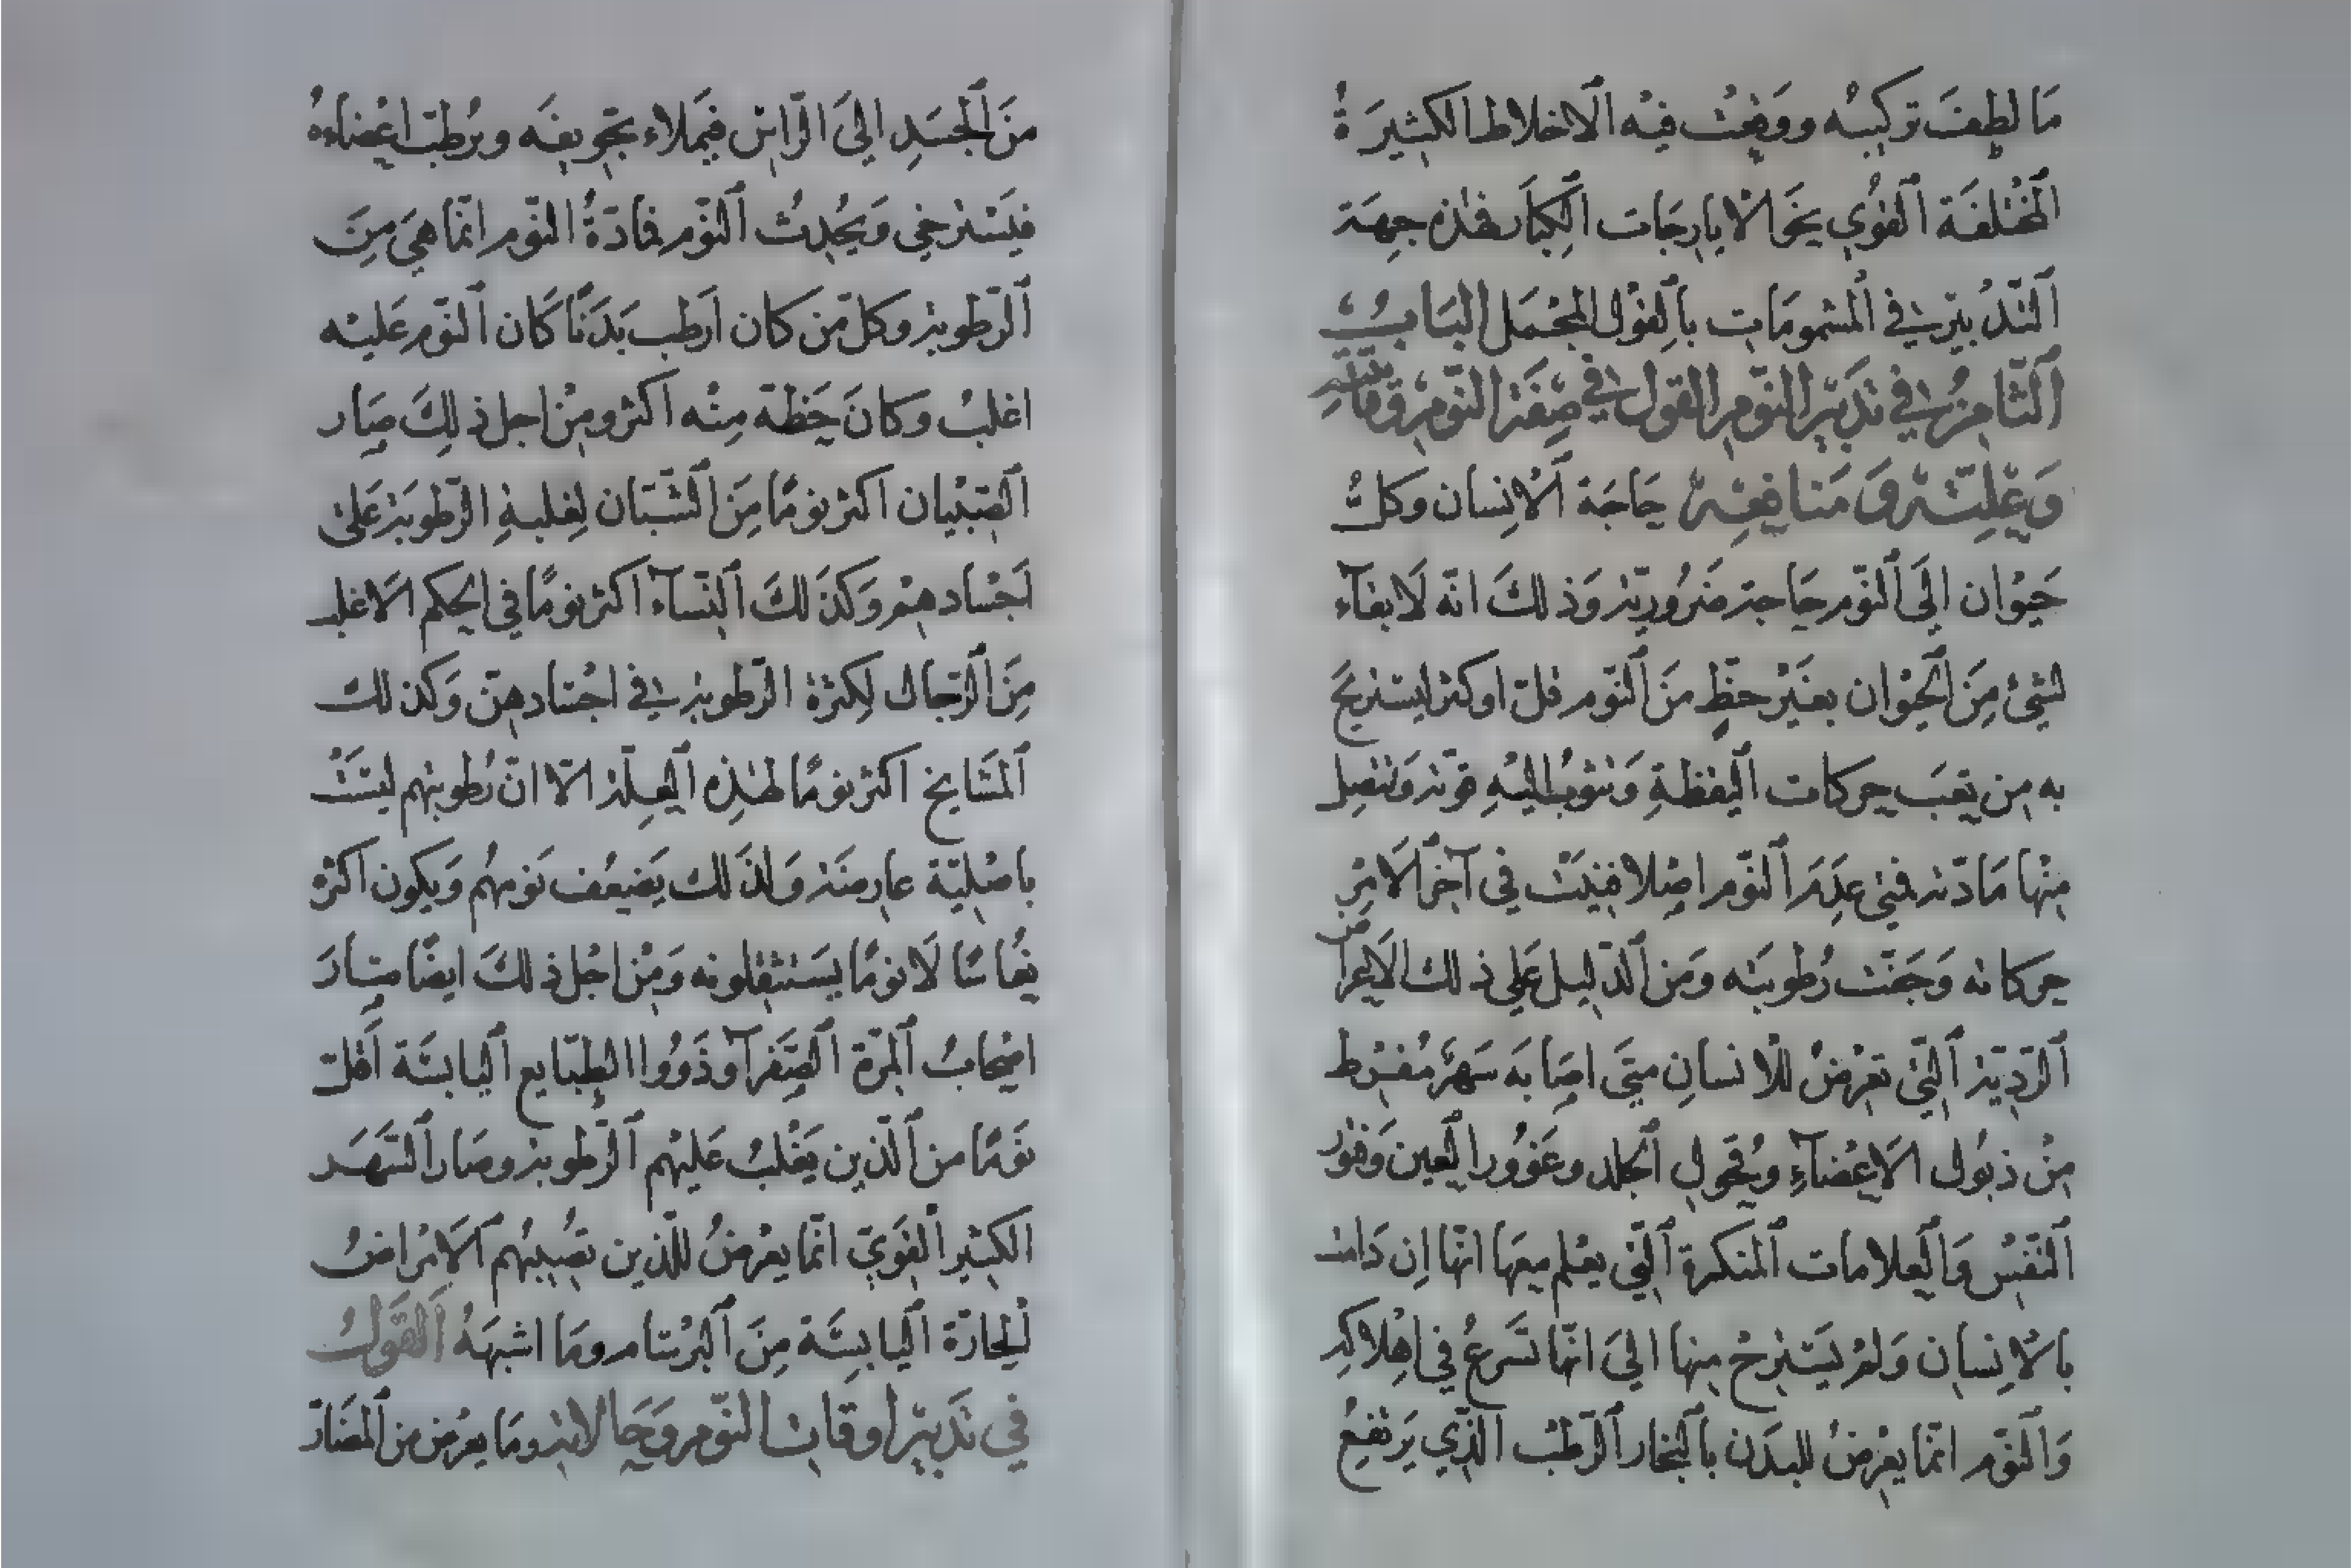 مَا لطِفَ تركيبُه ووَقعَت فيْه الاخلاط الكثيرَةُ
المُختلفَة القُوي نحَو الايارجَات الكبَار فهَذه جهَة
التّدْ بير في المشمومَات بالقوْل المجْمَل البَابُ
الثّامِنُ في تدبيْر النّوم القول في صِفَة النّوم وَمَائيّتهِ
وَعِلتّه وَمَنافِعِه حَاجَة الانسان وكلُّ
حَيوْان الِيَ النّوم حَاجة ضَرُوريّة وَذلكَ انّه لَا بقآء
لشيْء مِنَ الحيوْان بغَيْر حظٍّ منَ النّوم قلّ اوكثر ليستريحَ
به من تعَب حركات اليقظةِ وَتثوبُ اليْهِ قوّته وَتتّصِل
منْها مَادّته فمتي عدِمَ النّوم اصْلا فنيَتْ في آخر الَامْر
حركاته وَجَفّت رُطوبَته وَمن الدّليل عَلي ذلك الاعراض
الرّديّة الّتي تعرْضُ للانسانِ متَي اصَابَه سَهَرٌ مُفرْط
منْ ذبُول الاعْضآءِ وَقحُولِ الجلد وغوُور العين وَفتور
النّفْس وَالعلامات المنكرة الّتي يعْلم معَها انّها اِن دَامت
بالانسان وَلمْ يَسْترحْ منها اليَ انّها تسَرعُ في اهْلاكه
وَالنّوم انّما يعْرضُ للبدَن بالبُخار الرّطب الذّي يَرتفِعُ
منَ الجسَدِ اليَ الرّاس فيَملاء تجَويفَه ويُرطبّ اعْضاءهُ
فيَسْترخي وَيحُدِثُ النّوم فمادّةُ النّوم انّما هيَ مِنَ
الرّطوبة وكلّ مَن كان ارَطب بَدَنًا كَان النّوم عَليْه
اغلبُ وكانَ حَظهُ مِنْه اكثر ومِنْ اجل ذلِكَ صَار
الصّبْيان اكثر نومًا مِنَ الشّبّان لِغلبةِ الرّطوبَة عَليَ
اَجْسادهمْ وَكذَلكَ النّسآء اكثر نومًا في الحكم الاغلب
مِنَ الرّجال لِكثرة الرّطوبة في اجْسَادهنّ وَكذلك
المشَايخ اكثر نومًا لهذِه العِلّة الّا انّ رُطوبتهم ليسَتْ
باصْليّة عارضَة وَلذَلك يَضعُف نَومهُم وَيكون اكثره
نعُاسًا لَا نومًا يسَتثقلونه وَمِنْ اجْل ذلكَ ايضًا صَارَ
اصْحابُ المرّة الصّفرآ وذَووُا الطبّايع اليابسَة اَقلّ
نوَمًا من الذّين يَغْلبُ عَليْهم الرّطوبة وصَار السّهَر
الكثير القوَيّ انّما يعرْضُ للّذين تصُيبهُم الَامْراضُ
الحارّة اليابسَة مِنَ البرْسَام ومَا اشبهَهُ القَولُ
في تدَبيْر اوقات النّوم وَحَالاته ومَا يعرُض من المضَارّ